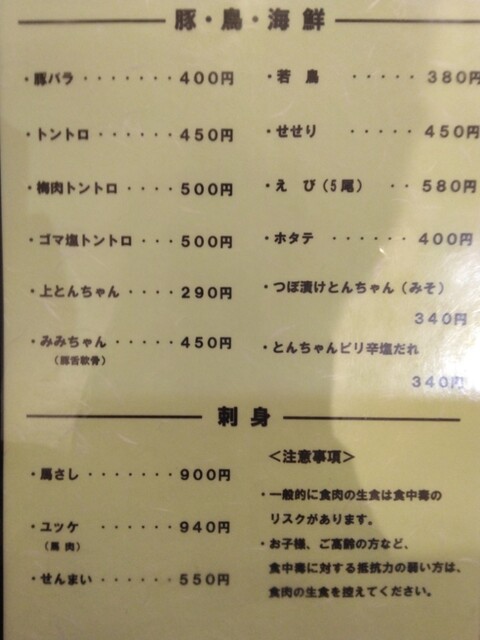 豚・鳥・海鮮
・豚バラ・・・・・・・400円
・トントロ・・・・・・450円
・梅肉トントロ・・・・500円
・ゴマ塩トントロ・・・500円
・上とんちゃん・・・・290円
・みみちゃん・・・・・450円
（豚舌軟骨）
・若 鳥 ・・・・・380円
・せせり ・・・・・450円
・え び（5尾） ・・580円
・ホタテ ・・・・・・400円
・つぼ漬けとんちゃん（みそ）
340円
・とんちゃんピリ辛塩だれ
340円
刺身
・馬さし・・・・・・・900円
・ユッケ ・・・・・・940円
（馬肉）
・せんまい・・・・・・550円
＜注意事項＞
・一般的に食肉の生食は食中毒の
リスクがあります。
・お子様、ご高齢の方など、
食中毒に対する抵抗力の弱い方は、
食肉の生食を控えてください。